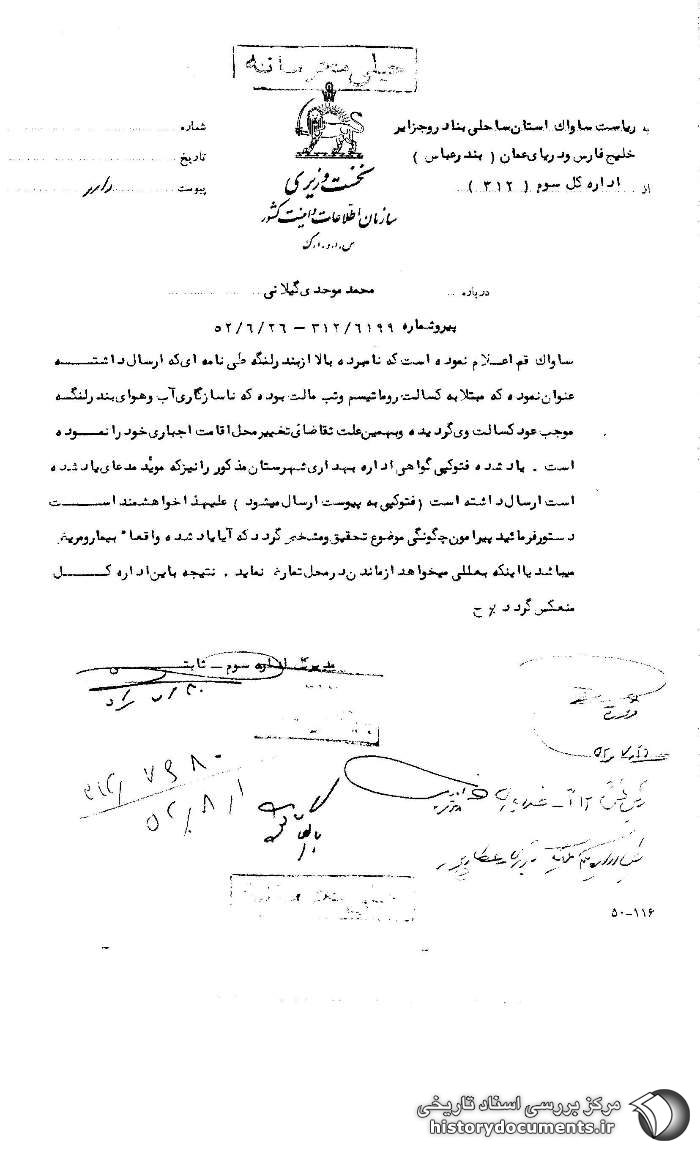 خیلی محرمانه
به ریاست ساواک استان ساحلی بنادر و جزایر
خلیج فارس و دریای عمان ( بندرعباس )
از اداره کل سوم ( ۳۱۲ )
شماره
تاریخ
پیوست دارد
نخست وزیری
سازمان اطلاعات و امنیت کشور
س.ا.و.ا.ک
درباره محمد موحدی گیلانی
پیرو شماره ۳۱۲/۶۱۹۹ – ۵۲/۶/۲۶
ساواک قم اعلام نموده است که نامبرده بالا از بندرلنگه طی نامه ای که ارسال داشته
عنوان نموده که مبتلا به کسالت روماتیسم وتب مالت بوده که ناسازگاری آب وهوای بندرلنگه
موجب عود کسالت وی گردیده وبهمین علت تقاضای تغییر محل اقامت اجباری خود را نموده
است . یاد شده فتوکپی گواهی اداره بهداری شهرستان مذکور را نیز که موید مدعای یاد شده
است ارسال داشته است (فتوکپی به پیوست ارسال میشود ) علیهذا خواهشمند است
دستور فرمائید پیرامون چگونگی موضوع تحقیق ومشخص گردد که آیا یاد شده واقعا" بیمار ومریض
میباشد یا اینکه بعللی میخواهد از ماندن در محل تمارض نماید . نتیجه باین اداره کل
منعکس گردد ٪ ح
مدیرکل اداره سوم – ثابتی
۳۱۲/۷۶۸۰
۵۲/۸/۱
۵۰-۱۱۶
مرکز بررسی اسناد تاریخی
historydocuments.ir